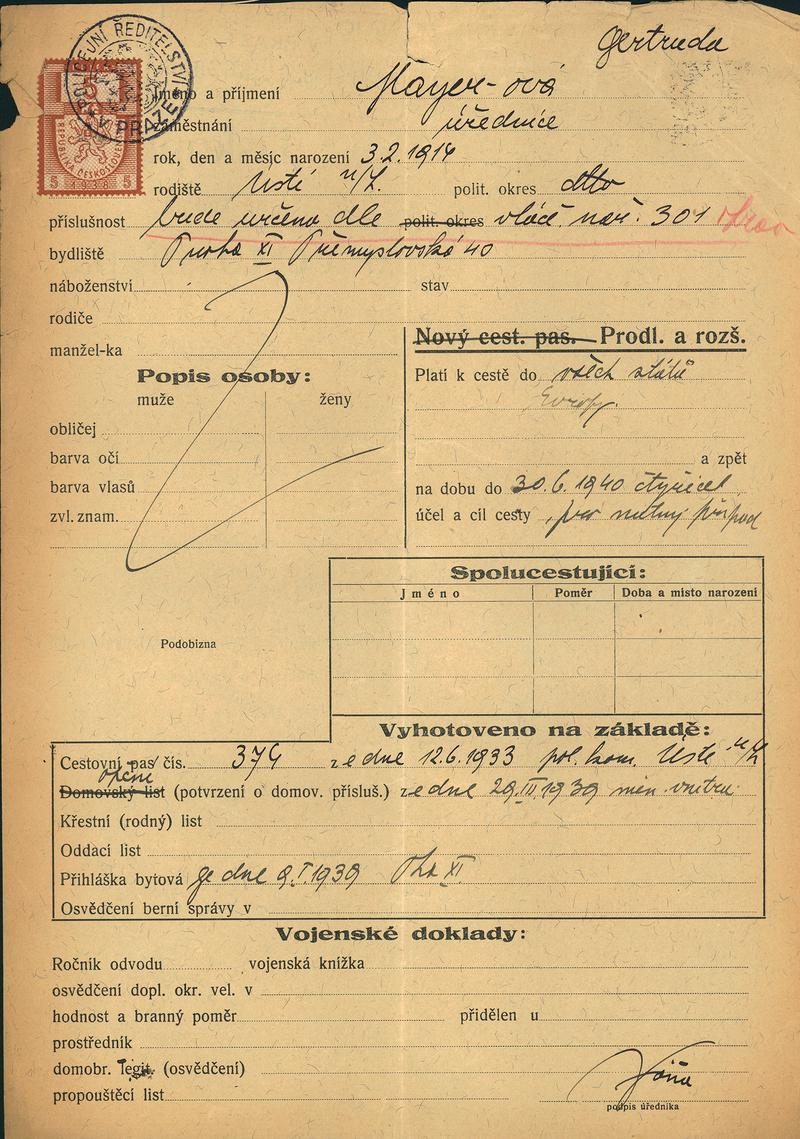 POLICEJNÍ ŘEDITELSTVÍ V PRAZE
5
REPUBLIKA ČESKOSLOVENSKÁ
5 1938 5
Gertruda
Jméno a příjmení Mayer-ová
zaměstnání úřednice
rok, den a měsíc narození 3.2.1914
rodiště Ústí n/L. polit. okres dtto
příslušnost bude určena dle polit. okres vlád. nař. 301
bydliště Praha XI Přemyslovská 40
náboženství stav
rodiče
manžel-ka
Nový cest. pas. Prodl. a rozš.
Popis osoby:
muže ženy
obličej
barva očí
barva vlasů
zvl. znam.
Platí k cestě do všech států
Evropy.
a zpět
na dobu do 30.6.1940 čtyřicet
účel a cíl cesty pro nutný případ
Spolucestující:
Jméno Poměr Doba a místo narození
Podobizna
Vyhotoveno na základě:
Cestovní pas čís. 374 ze dne 12.6.1933 pol. kom. Ústí n/L
Domovský list (potvrzení o domov. přísluš.) ze dne 29.III.1939 min. vnitra
Křestní (rodný) list
Oddací list
Přihláška bytová ze dne 9.I.1939 Pha XI.
Osvědčení berní správy v
Vojenské doklady:
Ročník odvodu vojenská knížka
osvědčení dopl. okr. vel. v
hodnost a branný poměr přidělen u
prostředník
domobr. legit. (osvědčení)
propouštěcí list
podpis úředníka